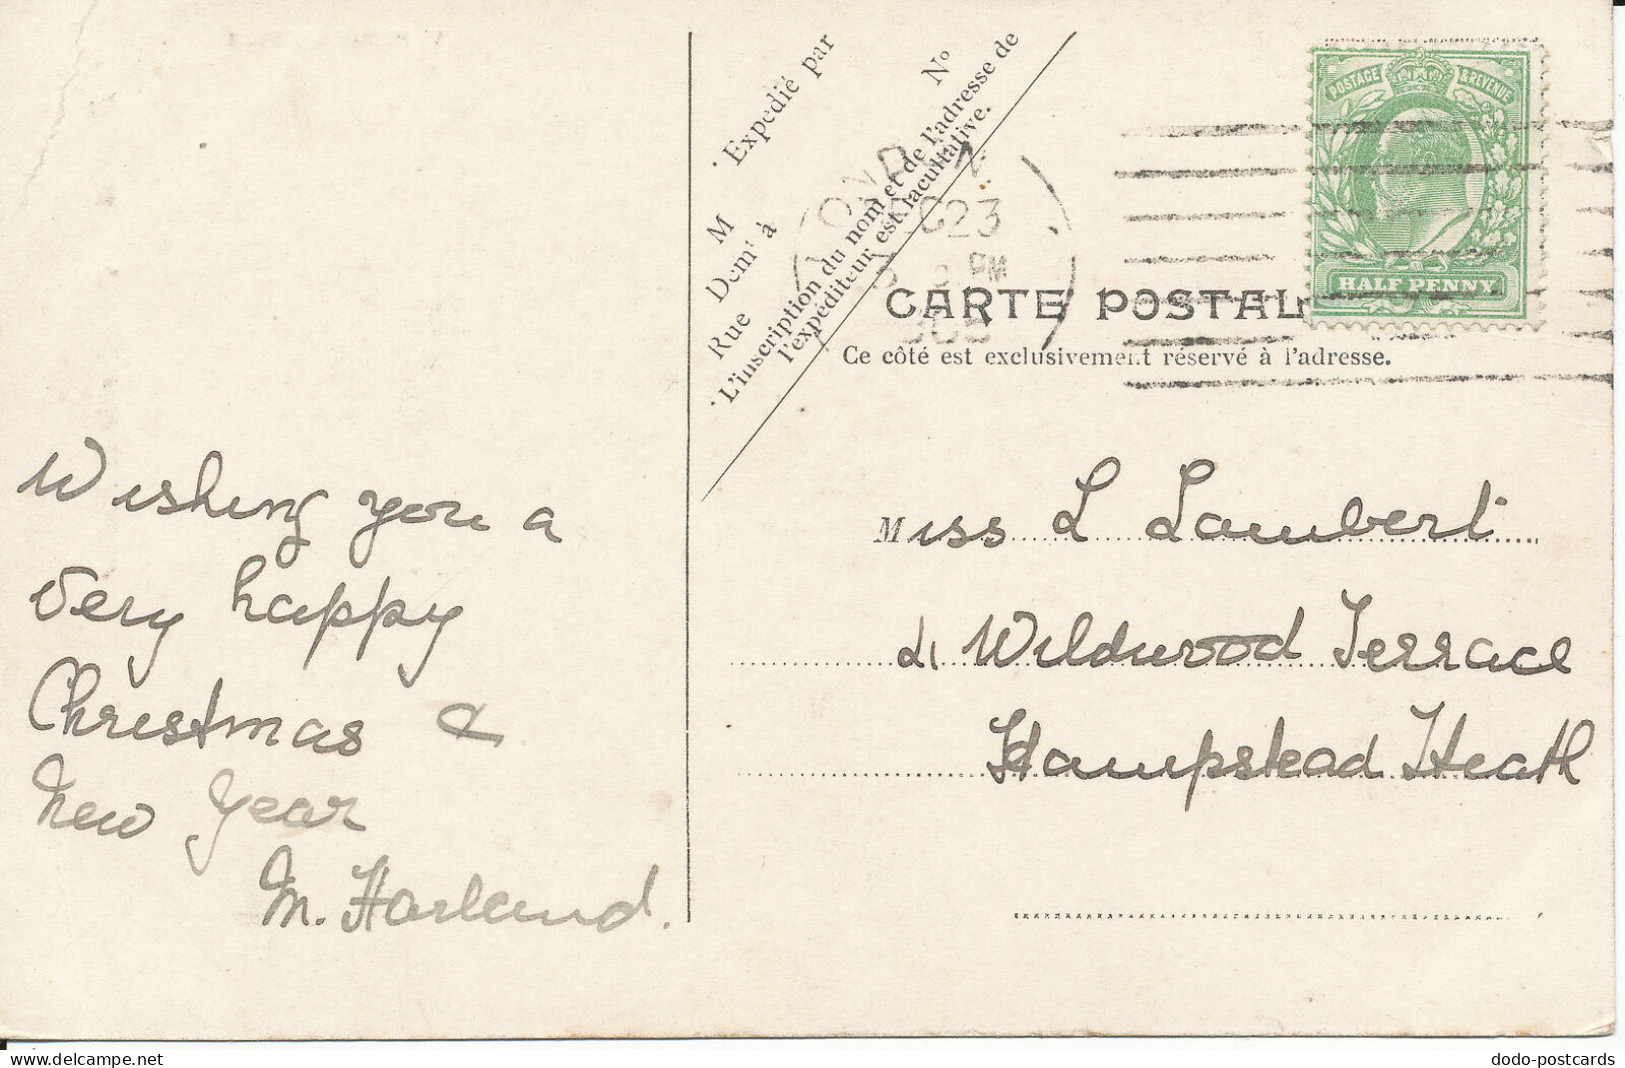 Wishing you a
very happy
Christmas &
New Year
M. Harland.
Expedié par
M
Nº
Demt à
Rue
L'inscription du nom et de l'adresse de
l'expéditeur est facultative.
DEC 23
PM
CARTE POSTAL
Ce côté est exclusivement réservé à l'adresse.
POSTAGE & REVENUE
HALF PENNY
Miss L Lambert
Wildwood Terrace
Hampstead Heath
delcampe.net
dodo-postcards